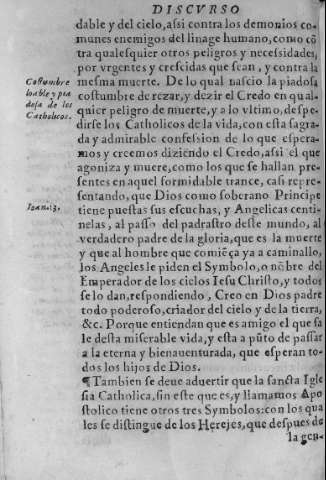 DISCVRSO
dable y del cielo, aſsi contra los demonios co-
munes enemigos del linage humano, como cõ
tra qualesquier otros peligros y neceſsidades,
por vrgentes y creſcidas que ſean, y contra la
Coſtumbre
loable y pia
doſa de los
Catholicos.
meſma muerte. De lo qual naſcio la piadoſa
coſtumbre de rezar, y dezir el Credo en qual-
quier peligro de muerte, y a lo vltimo, deſpe-
dirſe los Catholicos de la vida, con eſta ſagra-
da y admirable confeſsion de lo que eſpera-
mos y creemos diziendo el Credo, aſsi el que
agoniza y muere, como los que ſe hallan pre-
ſentes en aquel formidable trance, caſi repre-
ſentando, que Dios como ſoberano Principe
Ioan. 13.
tiene pueſtas sus eſcuchas, y Angelicas centi-
nelas, al paſſo del padraſtro deſte mundo, al
verdadero padre de la gloria, que es la muerte
y que al hombre que comiẽça ya a caminallo,
los Angeles le piden el Symbolo, o nõbre del
Emperador de los cielos Ieſu Chriſto, y todos
ſe lo dan, reſpondiendo, Creo en Dios padre
todo poderoſo, criador del cielo y de la tierra,
&c. Porque entiendan que es amigo el que ſa
le deſta miſerable vida, y eſta a pũto de paſſar
a la eterna y bienauenturada, que eſperan to-
dos los hijos de Dios.
¶ Tambien ſe deue aduertir que la ſancta Igle
ſia Catholica, ſin eſte que es, y llamamos Apo
ſtolico tiene otros tres Symbolos: con los qua
les ſe diſtingue de los Herejes, que deſpues de
la gen-